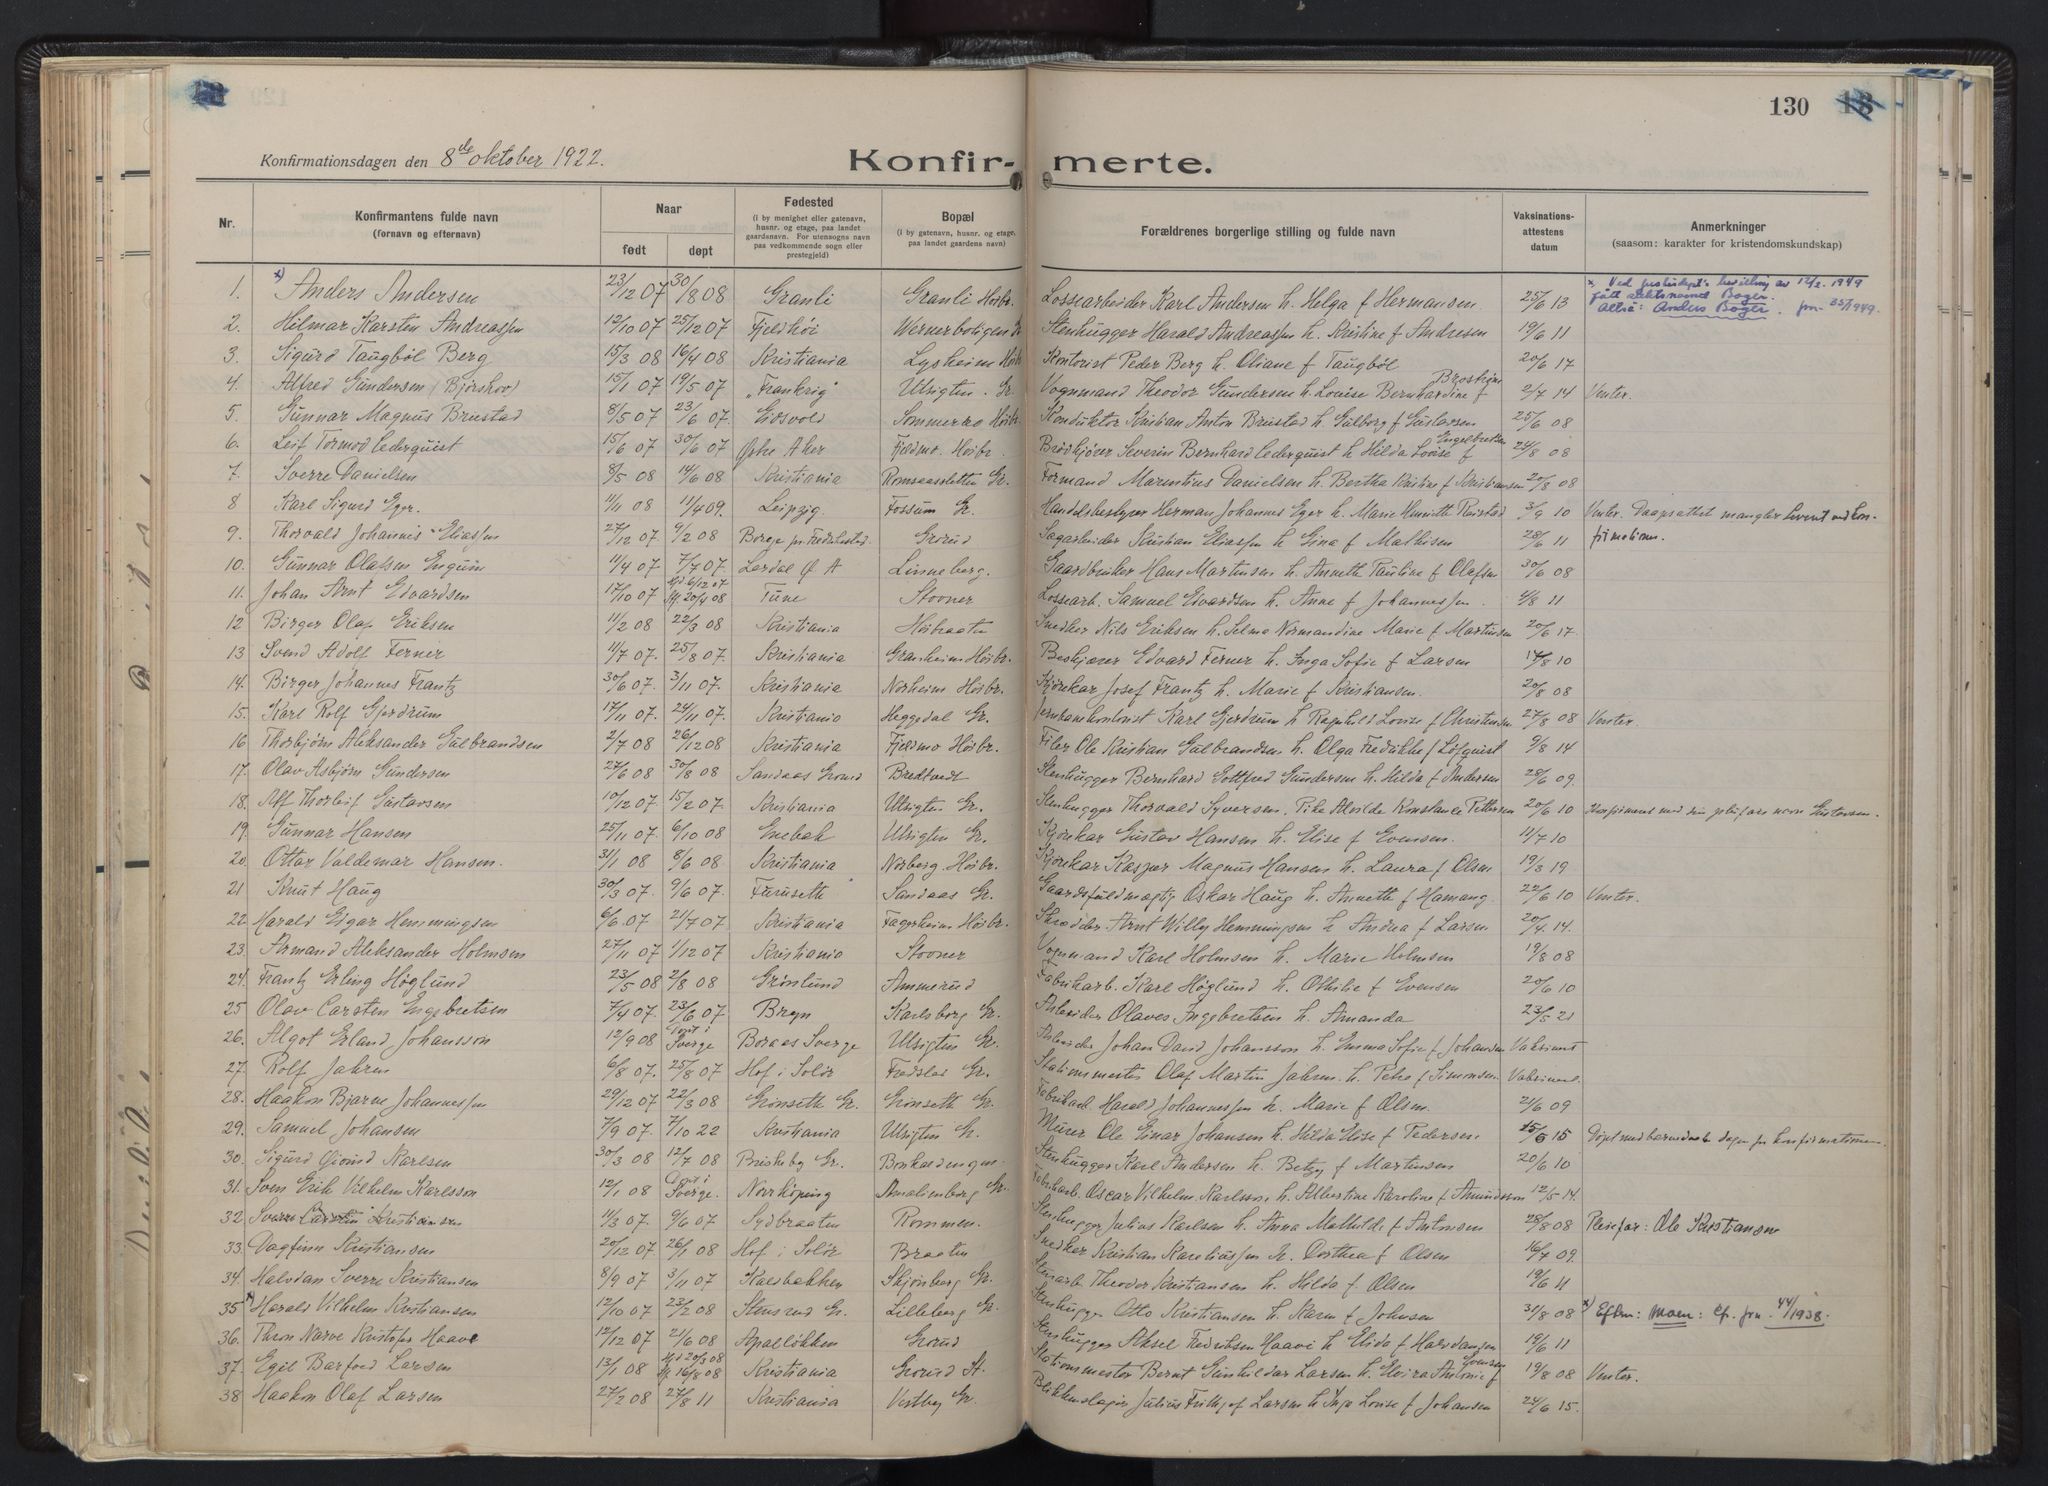 130
Konfirmationsdagen den 8de oktober 1922.
Konfir- merte.
Nr. Konfirmantens fulde navn (fornavn og efternavn) Naar født døpt Fødested (i by menighet eller gatenavn, husnr. og etage, paa landet gaardsnavn. For utensogns navn paa vedkommende sogn eller prestegjeld) Bopæl (i by gatenavn, husnr. og etage, paa landet gaardens navn) Forældrenes borgerlige stilling og fulde navn Vaksinations-attestens datum Anmerkninger (saasom: karakter for kristendomskundskap)
1. x) Anders Andersen 23/12 07 30/8 08 Granli Granli Høibr. Karl Andersen h. Helga f Hermansen 25/6 13 x, Ved bevilling av 12/2 1949 fått Boger. Altså: Anders Boger.
2. Hilmar Karsten Andreassen 12/10 07 25/12 07 Fjeldhøi Stenhugger Harald Andreassen h. Kristine f Andresen 19/6 11
3. Sigurd Taugbøl Berg 15/3 08 16/4 08 Kristiania Lysheim Høibr Kontorist Peder Berg h. Oliane f Taugbøl 20/6 17
4. Alfred Gundersen (Bjørskov) 15/1 07 19/5 07 "Frankrig" Utsigten. Gr. Vognmand Theodor Gundersen h. Lovise Bernhardine f 2/7 14 Venter.
5. Gunnar Magnus Brustad 8/5 07 23/6 07. Eidsvold Sommerro Høibr. Konduktør Kristian Anton Brustad h. Gulborg f Gustavsen 25/6 08
6. Leif Tormod Cederquist 15/6 07 30/6 07 Østre Aker Fjeldmo. Høibr. Brødkjører Severin Bernhard Cederquist h Hilda Lovise f Engelbretsen 24/8 08
7. Sverre Danielsen 8/5 08 14/6 08 Kristiania Romsaassletten Gr. Formand Marentius Danielsen h. Bertha Kristine f Kristiansen 20/8 08
8 Karl Sigurd Eger. 11/11 08 11/4 09. Leipzig. Fossum Gr. Handelsbestyrer Herman Johannes Eger h. Marie Henriette Reistad 3/9 10 Venter. Daapsattest mangler
9. Thorvald Johannes Eliassen 27/12 07. 9/2 08 Borge pr. Fredrikstad. Grorud Sagarbeider Kristian Eliassen h Gina f Mathisen 28/6 11 firmationen.
10. Gunnar Olafsen Engum 11/4 07 7/7 07. Lørdal Ø A Linneberg. Gaardbruker Hans Martinsen h. Anneth Pauline f Olafsen 30/6 08
11. Johan Arnt Edvardsen 17/10 07 Hjd 6/12 07 Kj. 20/4 08 Tune Stovner Lossearb. Samuel Edvardsen h. Anne f Johannessen. 4/8 11
12 Birger Olaf Eriksen 11/2 08 22/3 08 Kristiania Høibraaten Snedker Nils Eriksen h. Selma Normandine Marie f Martinsen 20/6 17.
13 Svend Adolf Ferner 11/7 07. 25/8 07. Kristiania Granheim Høibr. Edvard Ferner h. Inga Sofie f Larsen 14/8 10
14. Birger Johannes Frantz 30/6 07. 3/11 07. Kristiania Norheim Høibr. Kjørekar Josef Frantz h. Marie f Kristiansen. 20/8 08
15. Karl Rolf Gjerdrum 17/11 07. 24/11 07. Kristiania Heggedal Gr. Jernbanekontorist Karl Gjerdrum h Ragnhild Lovise f Christensen 27/8 08 Venter.
16 Thorbjørn Aleksander Gulbrandsen 2/7 08 26/12 08 Kristiania Fjeldmo Høibr. Filer Ole Kristian Gulbrandsen h. Olga Fredrikke f Löfquist 9/8 14
17. Olav Asbjørn Gundersen 27/6 08 30/8 08 Sandaas Grorud Bredtvedt Stenhugger Bernhard Gottfred Gundersen h. Hilda f Andersen 28/6 09.
18. Alf Thorleif Gustavsen 10/12 07. 15/2 07. Kristiania Utsigten Gr. Stenhugger Thorvald Syversen. Pike Alvilde Konstanse Pettersen 20/6 10 Konfirmert med sin pleiefars navn Gustavsen.
19. Gunnar Hansen 25/11 07. 6/10 08 Enebak Utsigten Gr. Kjørekar Gustav Hansen h. Elise f Evensen. 11/7 10
20. Ottar Valdemar Hansen. 31/1 08 8/6 08 Kristiania Norberg Høibr. Kjørekar Kasper Magnus Hansen h. Laura f Olsen 19/3 19
21 Knut Haug 30/3 07. 9/6 07. Furuseth Sandaas Gr. Gaardsfuldmægtig Oskar Haug h. Anneth f Hamang. 22/6 10 Venter.
22. Harald Edgar Hemmingsen 6/6 07. 21/7 07 Kristiania Fagerheim Høibr. Skrædder Arnt Willy Hemmingsen h Andrea f Larsen 20/4 14.
23. Armand Aleksander Holmsen 27/11 07 1/12 07 Kristiania Stovner Vognmand Karl Holmsen h. Marie Holmsen 19/8 08
24. Frantz Erling Höglund 23/5 08 2/8 08 Grønlund Ammerud Fabrikarb. Karl Höglund h. Othilie f Evensen 20/6 10
25 Olav Carsten Engebretsen 7/4 07. 23/6 07 Bryn Karlsborg Gr. Arbeider Olaves Ingebretsen h. Amanda 23/5 21
26. Algot Erland Johansson 12/9 08 Døpt i Sverge Boraas Sverge Utsigten Gr. Arbeider Johan David Johansson h. Emma Sofie f Johansen Vaksinert
27. Rolf Jahren 6/8 07. 25/8 07 Hof i Solør Fredslod Gr. Stationsmester Olaf Martin Jahren. h. Petra f Simonsen. Vaksinert.
28. Haakon Bjarne Johannessen 29/12 07 22/3 08 Grönseth Gr. Grönseth Gr. Fabrikarb. Harald Johannessen h. Marie f Olsen. 21/6 09
29. Samuel Johansen 7/9 07. 7/10 22 Kristiania Utsigten Gr. Murer Ole Einar Johansen h. Hilda Elise f Pedersen. 15/8 15 Døpt med barnedaab dagen før konfirmationen.
30. Sigurd Øivind Karlsen 30/3 08 12/7 08 Brisheby Gr. Stenhugger Karl Andersen h. Betzy f Martinsen 20/6 10
31. Sven Erik Vilhelm Karlsson 12/1 08 Døpt i Sverge. Norrköping Amalienborg Gr. Fabrikarb. Oscar Vilhelm Karlsson. h. Albertine Karoline f Amundsson 12/5 14.
32. Sverre Carsten Kristiansen 11/3 07. 9/6 07 Sydbraaten Rommen. Stenhugger Julius Karlsen h. Anna Mathilde f Antonsen 28/8 08 Pleiefar: Ole Kristiansen
33. Dagfinn Kristiansen 20/12 07. 26/1 08 Hof i Solør Braaten Snedker Kristian Kareliussen h. Dorthea f Olsen 16/7 09.
34. Halvdan Sverre Kristiansen 8/9 07. 3/11 07 Kalbakken Skjönberg Gr. Stenarb. Theodor Kristiansen h. Hilda f Olsen 19/6 11
35 x) Harald Vilhelm Kristiansen 12/10 07 23/2 08 Stensrud Gr. Lilleberg Gr. Stenhugger Otto Kristiansen h. Karen f Johnsen 31/8 08 x) Eftn: Moen: cf. jnr. 44/1938.
36. Thron Narve Kristofer Haave 12/12 07 21/6 08 Apalløkken Grorud Stenhugger Aksel Fredriksen Haave h Elida f Halvdansen 19/6 11
37. Egil Barfoed Larsen 13/1 08 Hjd 20/3 08 Kj. 16/8 08 Kristiania Grorud St. Stationsmester Bernt Gunhildar Larsen h. Elvira Antonie f Evensen 19/8 08 Venter.
38 Haakon Olaf Larsen 27/2 08 27/8 11 Kristiania Vestby Gr. Blikkenslager Julius Frithjof Larsen h Inga Lovise f Johansen 24/6 15.